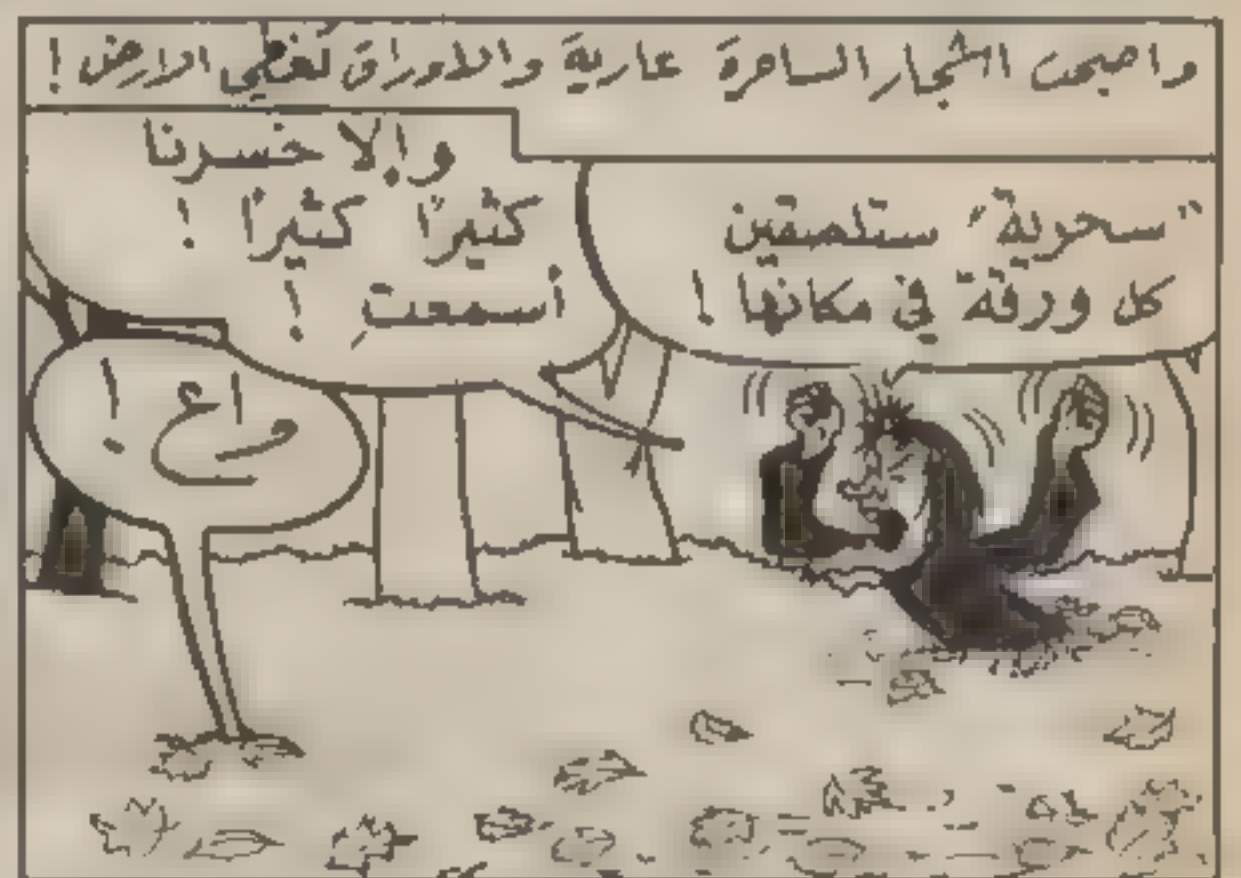 واصبحت اشجار الساحرة عارية والاوراق تغطي الارض !
"سحولة" ستلصقين
كل ورقة في مكانها !
وإلا خسرنا
كثيرًا كثيرًا !
أسمعتِ !